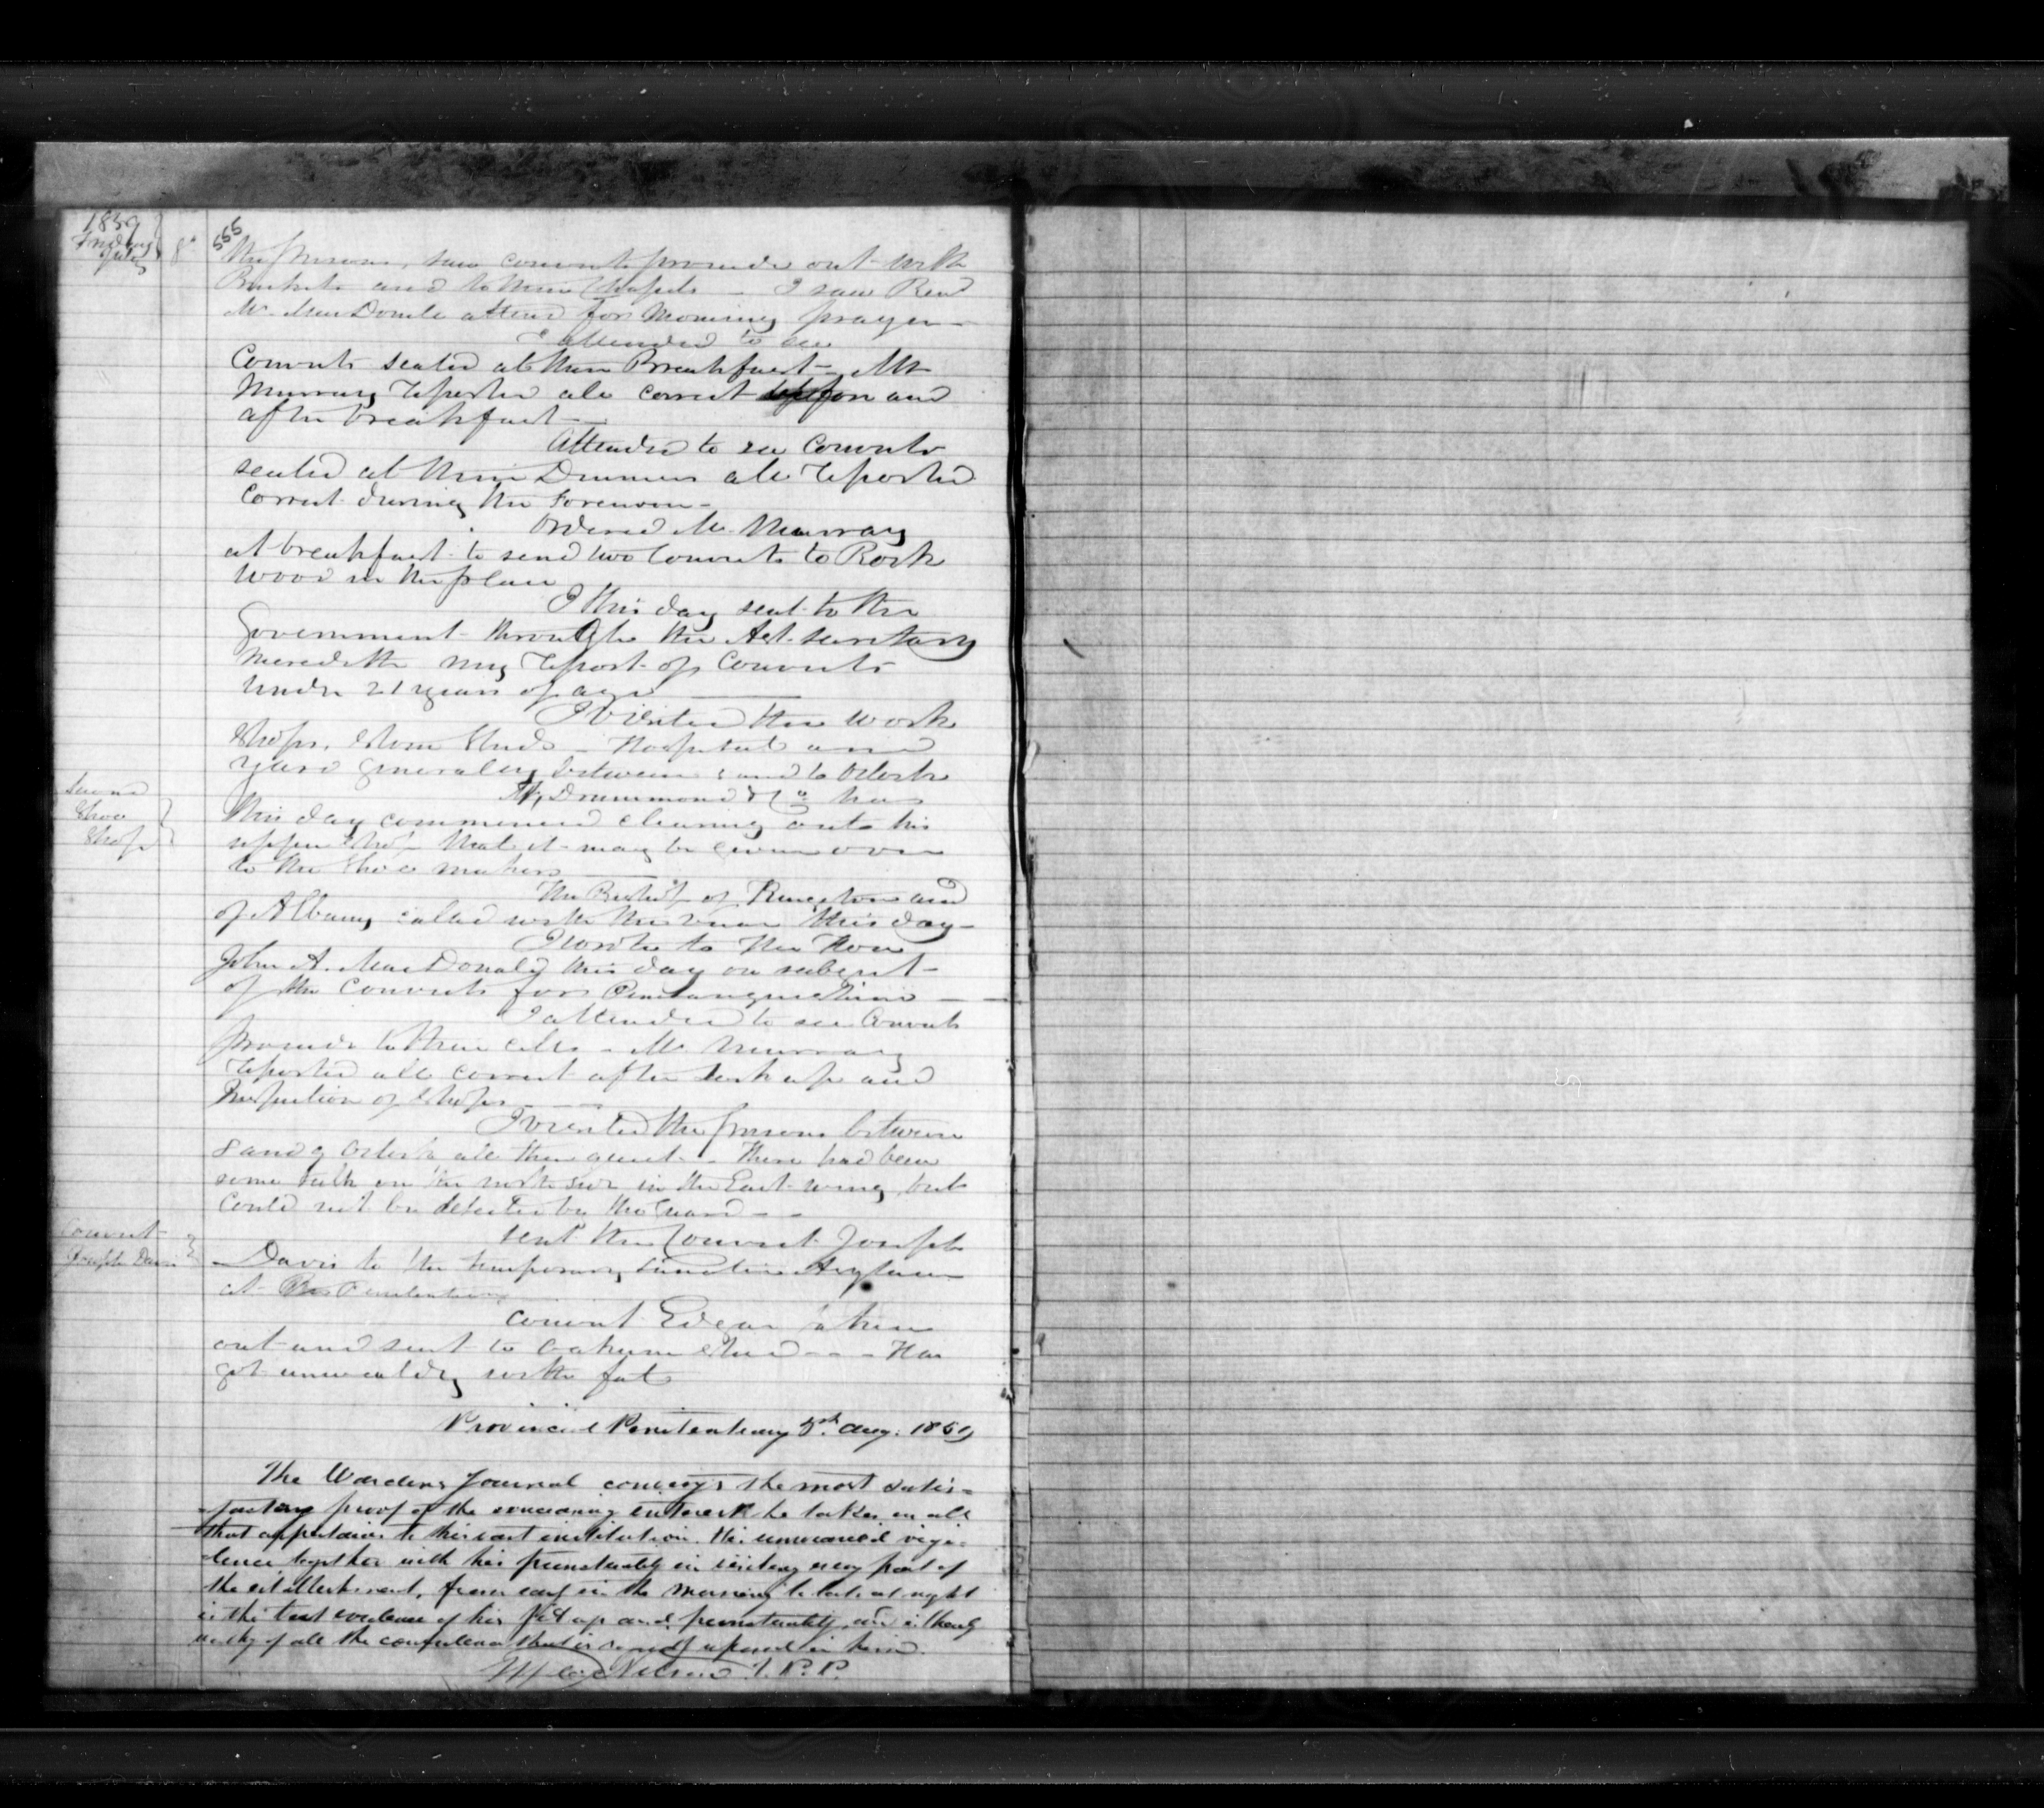 1859
Friday 8th
July
555
the prisons, saw convicts proceede out with
Buckets and to their Chapels - I saw Revd
Mr. MacDonell attend for Morning prayer -
I attended to see
Convicts seated at their Breakfast - Mr
Murray reported all correct before and
after breakfast -
Attended to see Convicts
seated at their Dinners all reported
Correct during the Forenoon -
Ordered Mr. Murray
at breakfast to send two Convicts to Rock
wood in the place
I this day sent to the
Government through the Ast. Secretary
Meredith my report of Convicts
under 21 years of age
I visited the work
Shops, Stone Sheds - Hospital and
yard generally between and to Oclock
Mr Drummond & Co has
this day commenced cleaning out his
upper Shop that it may be given over
to the Shoe makers
Second
Shoe
Shop
The Bishop of Kingston and
of Albany called with the this day -
I wrote to the Hon
John A. MacDonald this day on subject
of the Convicts for Penetanguishine -
I attended to see Convicts
proceede to their cells - Mr Murray
reported all correct after lock up and
Inspection of Shops -
I visited the prisons between
8 and 9 Oclock all then quiet - There had been
some talk on the north side in the East wing but
could not be detected by the Guard - -
Sent the Convict Joseph
Davis to the temporary Lunatic Asylum
at the Penitentiary
Convict
Joseph Davis
Convict Edgar taken
out and sent to Oakum Shed - - - Has
got unwealdy with fat
Provincial Penitentiary 5th Aug. 1859
The Wardens Journal conveys the most satis-
factory proof of the unceasing interest he takes in all
that appertains to this vast institution. His unwearied vigi-
lence together with his punctuality in visiting every part of
the establishment, from early in the morning to late at night
is the best evidence of his and punctuality, and is
worthy of all the confidence that is reposed in him.
Nelson I. P. P.